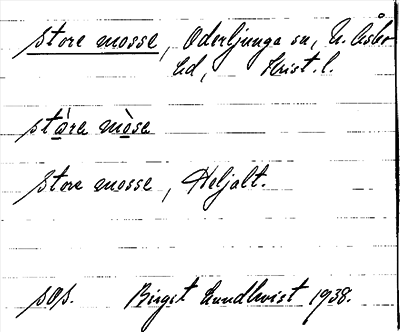 Store mosse, Oderljunga sn, N. Åsbo
hd, Krist. l.
stòre mòse
Store mosse, Heljalt.
sOs. Birgit Lundkvist 1938.